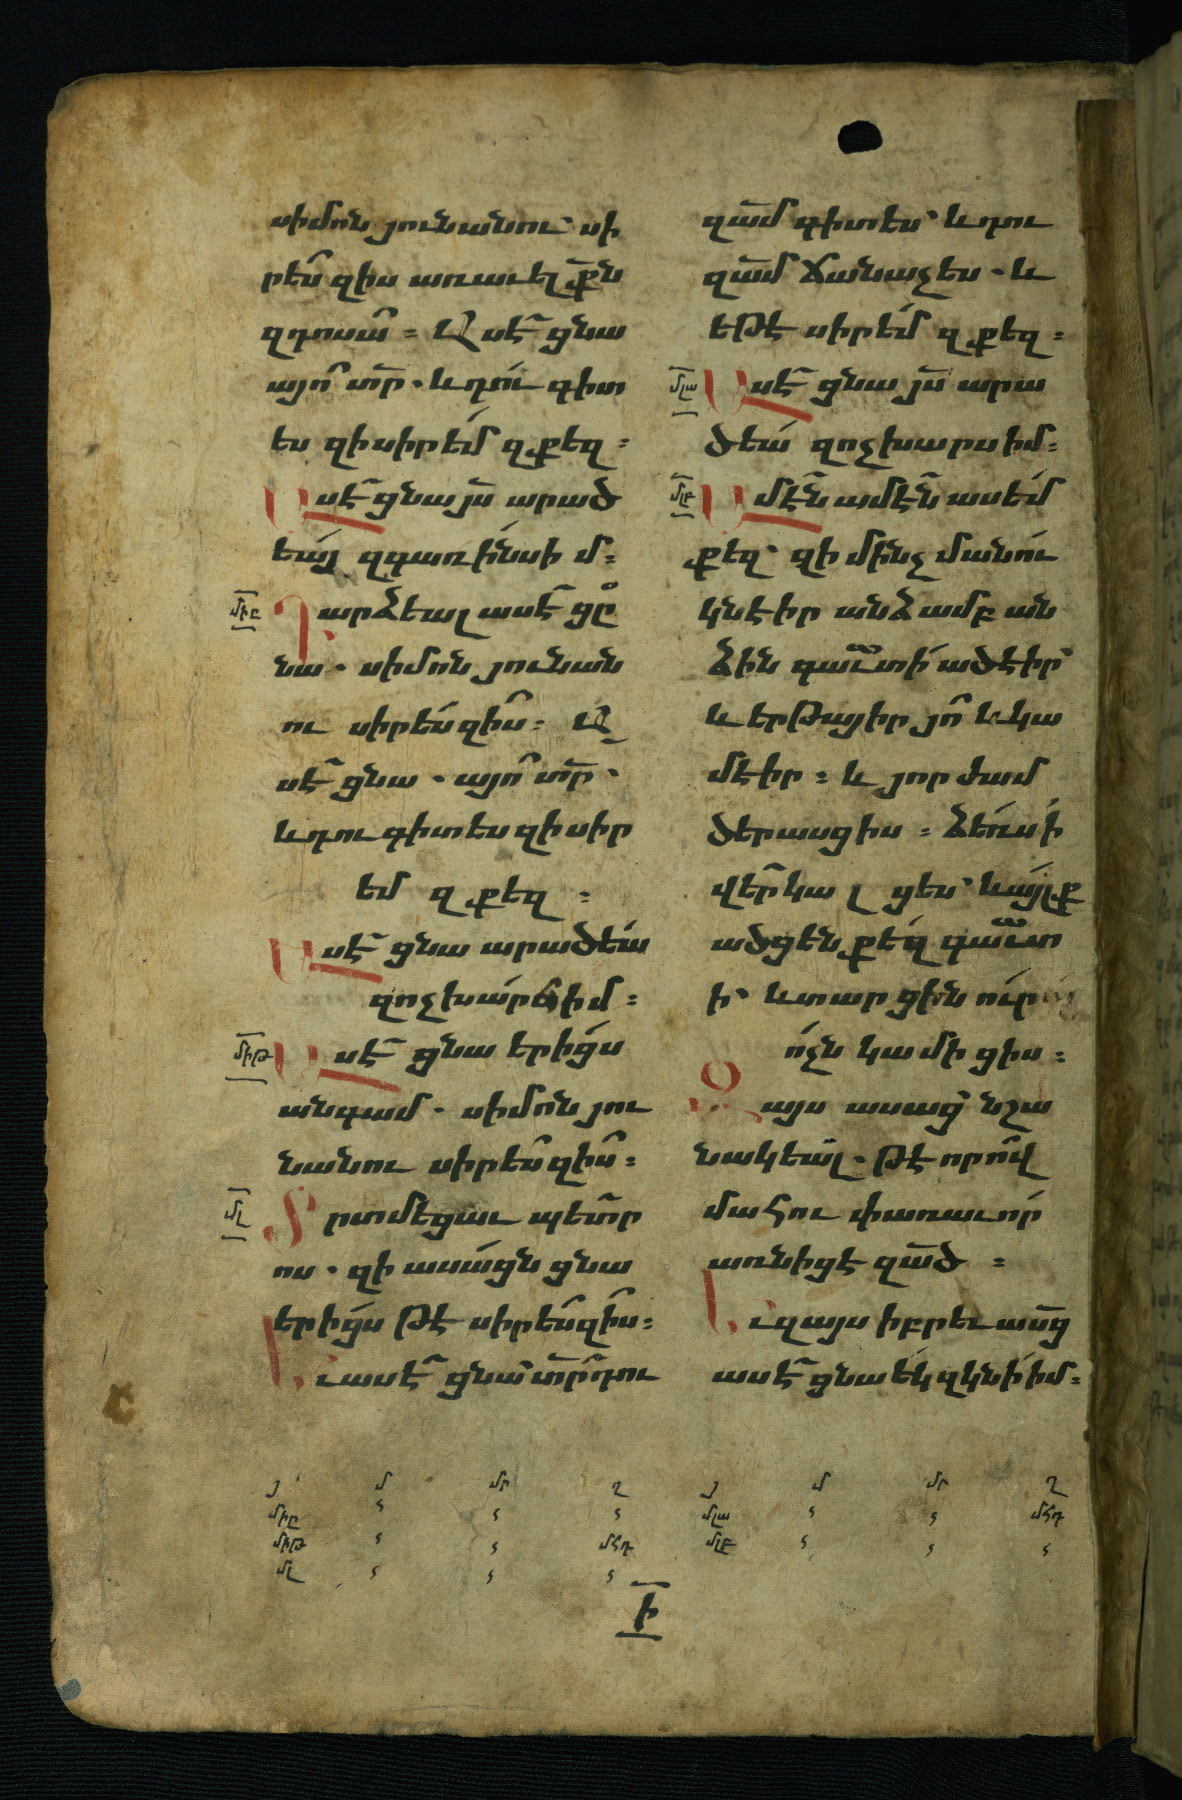 սիմոն յունանու՝ սի
րես զիս առաւել քն
զդոսա = Ա սէ ցնա
այո տր . և դու գիտ
ես զի սիրեմ զքեզ =
Ասէ ցնա յս արած
եայ զգառինսի մ =
միը Դարձեալ ասէ ցը
նա . սիմոն յունան
ու սիրես զիս = Ա
սէ ցնա . այո տր .
և դու գիտես զի սիր
եմ զքեզ =
Ասէ ցնա արածեա
զոչխարսիմ =
միթ Ասէ ցնա երիցս
անգամ . սիմոն յու
նանու սիրես զիս =
մլ Տրտմեցաւ պետր
ոս . զի ասացն ցնա
երիցս թէ սիրես զիս =
Եւ ասէ ցնա տր դու
զամ գիտես՝ և դու
զամ ճանաչես . և
եթէ սիրեմ զքեզ =
մլա Ասէ ցնա յս արա
ծեա զոչխարսիմ =
մլբ Ամէն ամէն ասեմ
քեզ՝ զի մինչ մանու
կնէիր անձամբ ան
ձին գաւտի ածէիր՝
և երթայիր յո և կա
մէիր = և յորժամ
ծերասցիս = ձեռս ի
վեր կա լ ցես՝ և այլք
ածցեն քեզ գաւտ
ի՝ և տարցին ուր
ոչն կամիցիս =
Զայս ասաց նշա
նակեալ . թէ որով
մահու փառաւոր
առնիցէ զած =
Եւ զայս իբրեւ ասց
ասէ ցնա եկ զկնի իմ =
յ մ մր ղ
միը
միթ մհդ
մլ
յ մ մր ղ
մլա մհդ
մլբ
ի